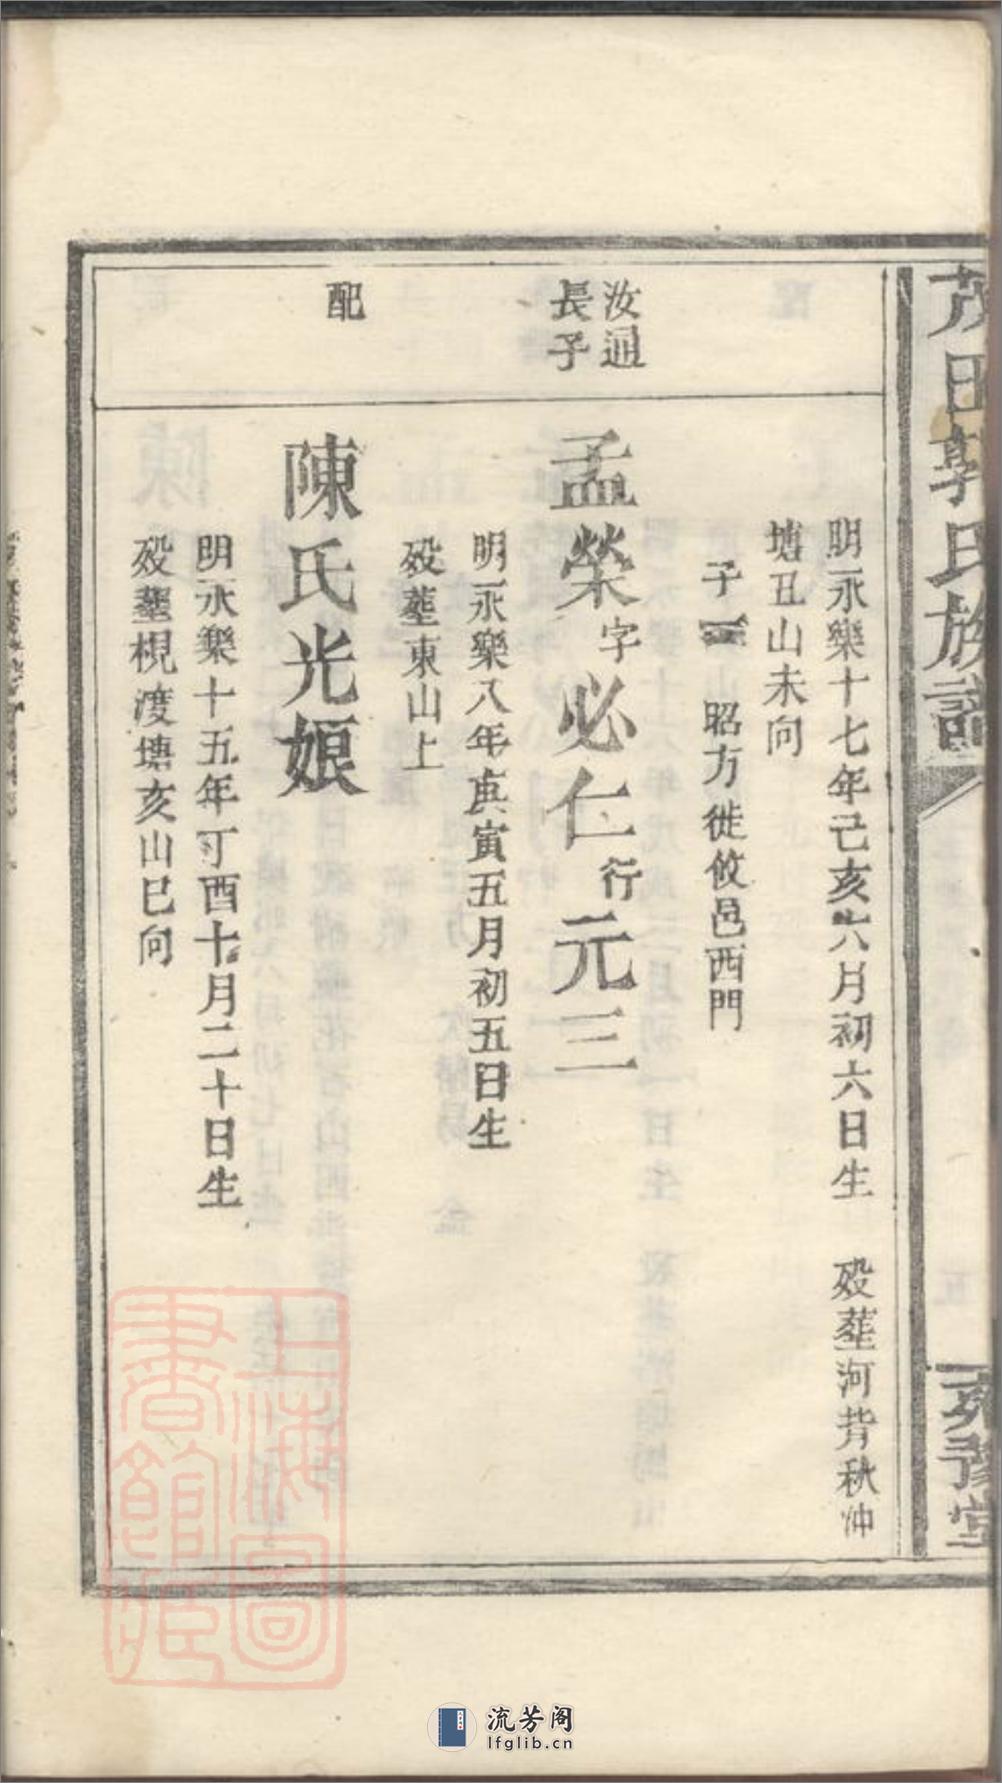 茂田郭氏族譜
明永樂十七年己亥六月初六日生 歿塟河背秋冲
塘丑山未向
子一 昭方徙攸邑西門
汝通
長子
孟榮字必仁行元三
明永樂八年庚寅五月初五日生
歿塟東山上
配
陳氏光娘
明永樂十五年丁酉十月二十日生
歿塟梘渡塘亥山巳向
上海圖
書館
流芳阁
lfglib.cn